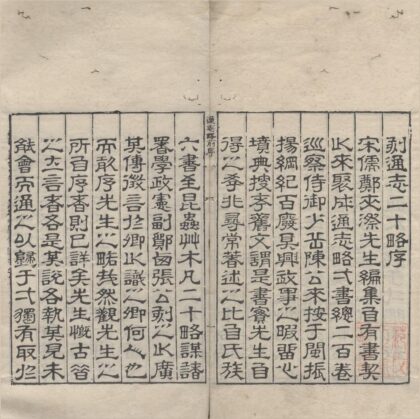 刻通志二十略序
宋儒鄭夾漈先生編集自有書契
以來聚成通志略弌書總二百卷
巡察侍御少岳陳公來按于閩振
揚綱紀百廢具興政事之暇留心
墳典搜奇舊文謂是書實先生自
得之季非尋常著述之比自氏族
通志略前序
六書至昆蟲艸木凡二十略謀諸
署學政憲副鄮西張公刻之以廣
其傳徵言于卿以識之卿何人也
而敢序先生之略哉然觀先生之
所自序者則已詳矣先生慨古昔
之大言者各是其說各執其見未
能會而通之以歸于弌獨有取於